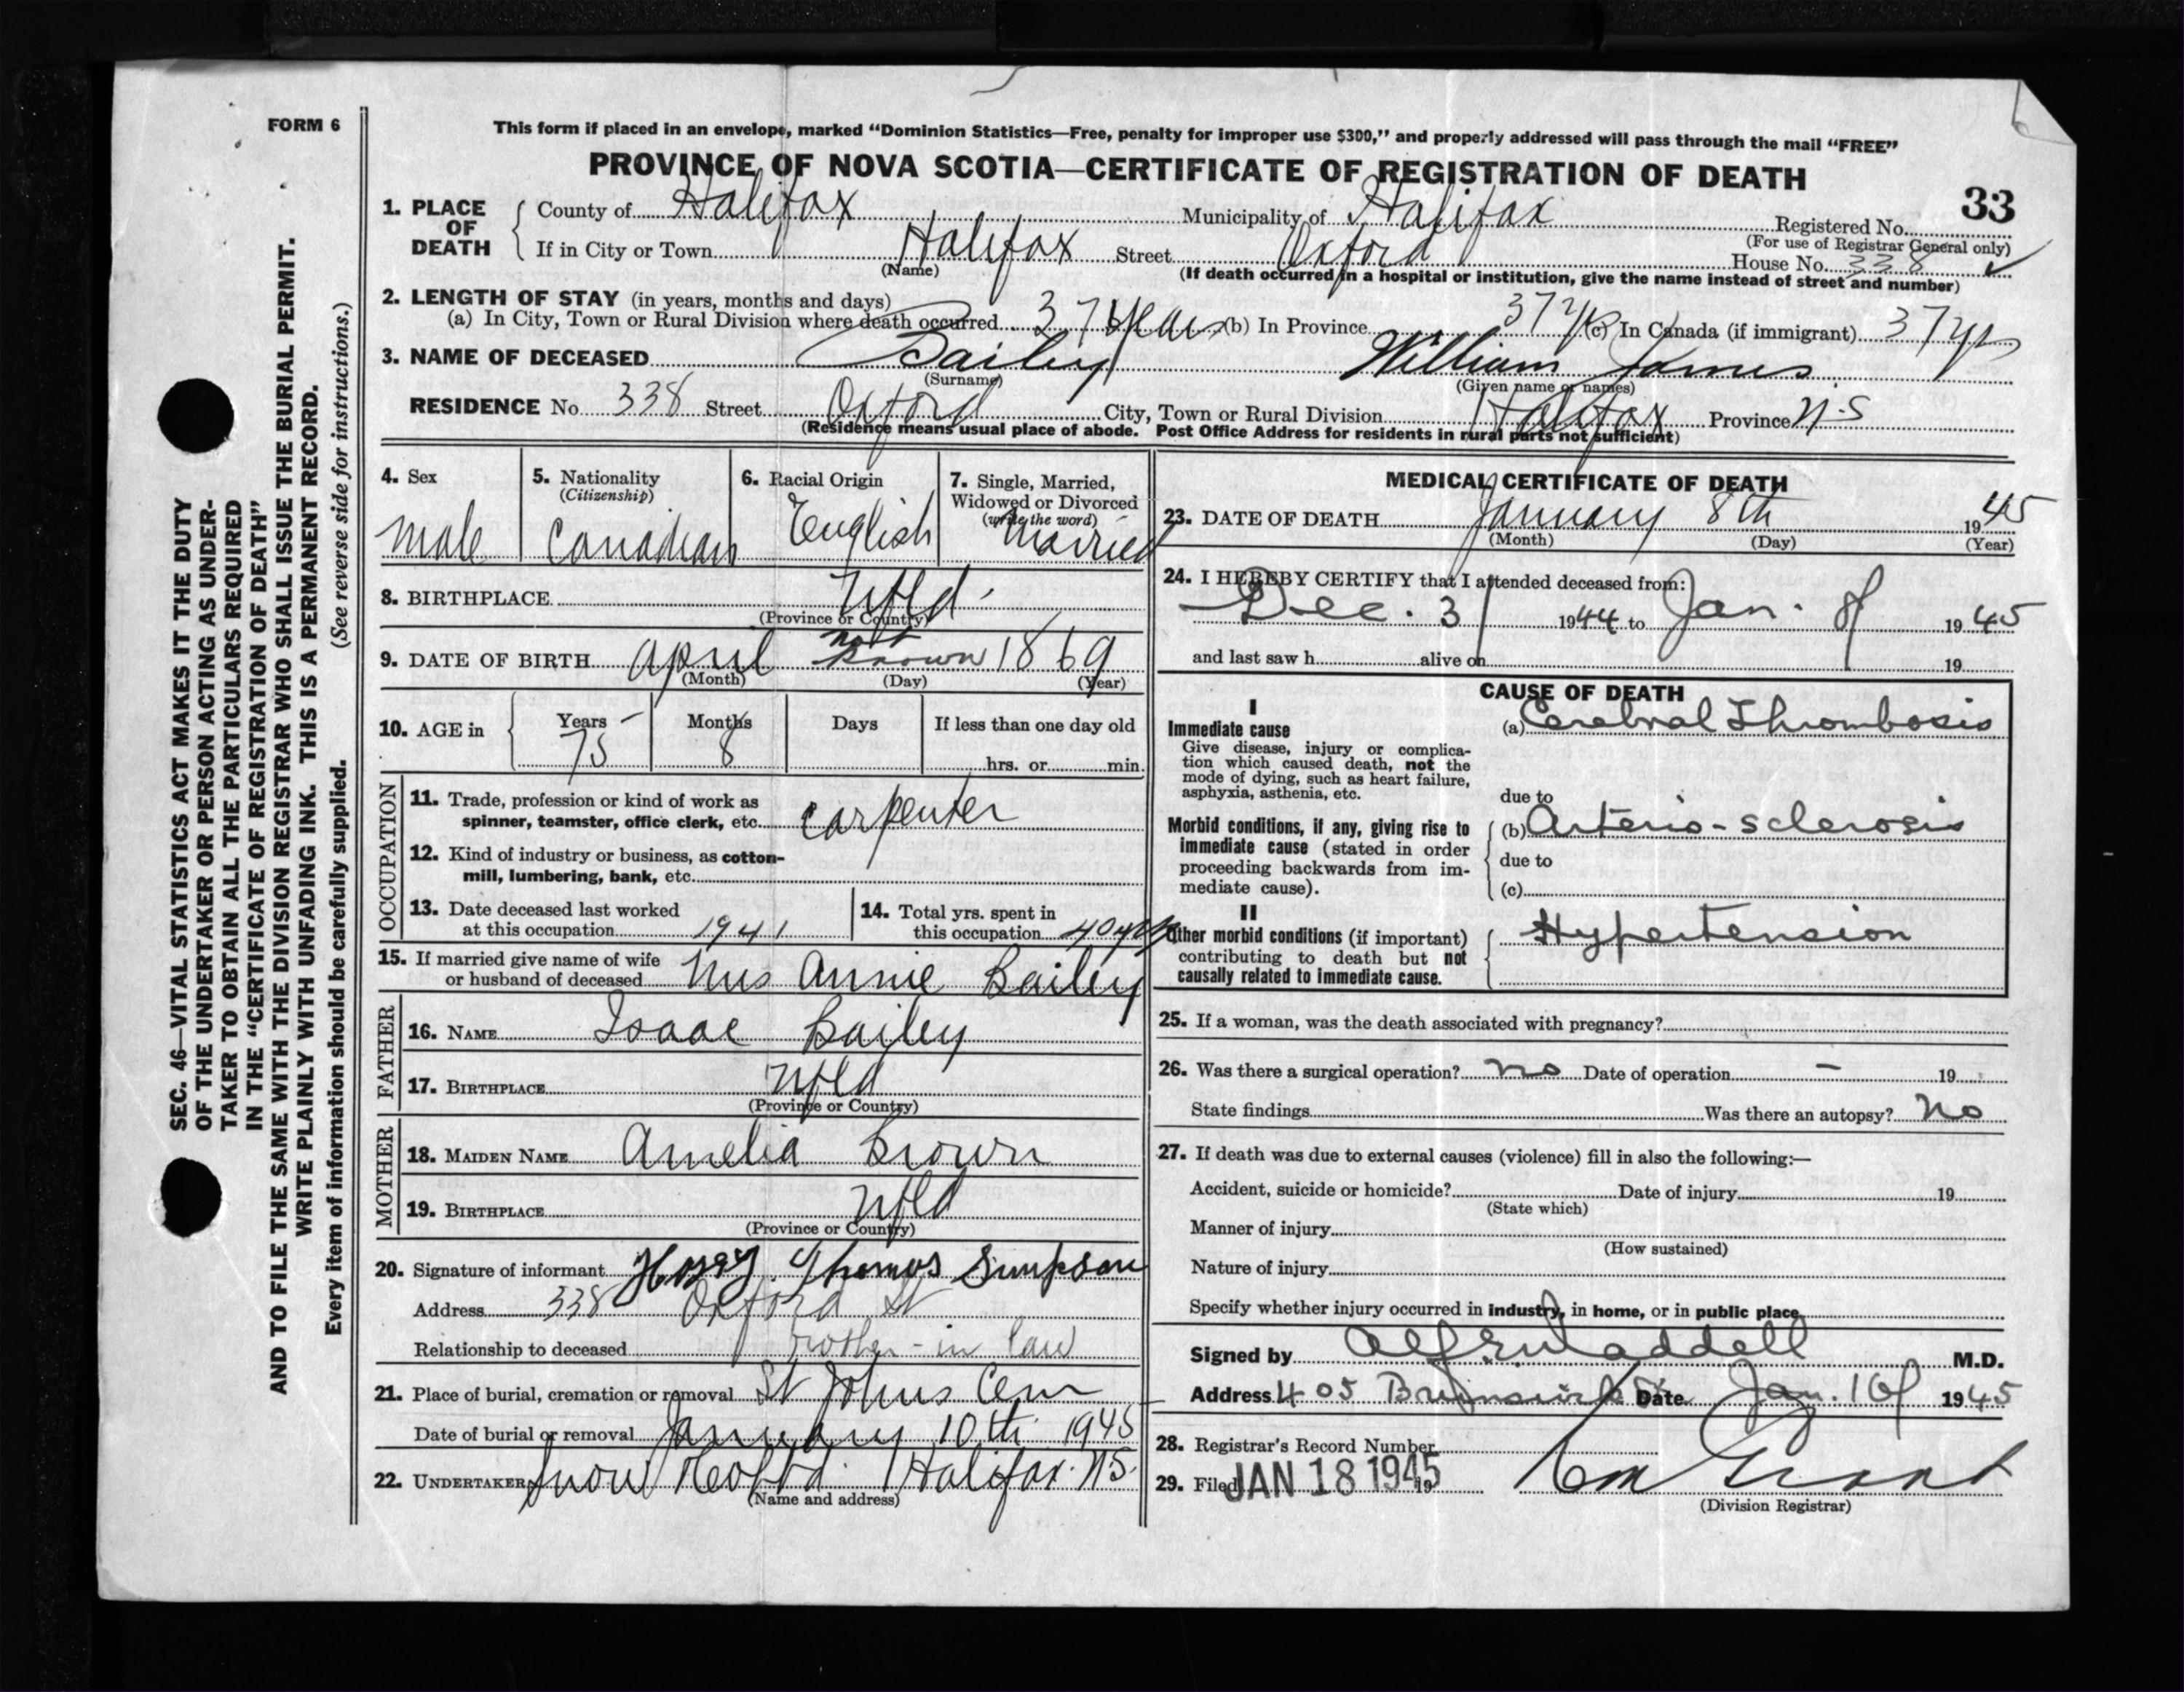 FORM 6
This form if placed in an envelope, marked “Dominion Statistics—Free, penalty for improper use $300,” and properly addressed will pass through the mail “FREE”
PROVINCE OF NOVA SCOTIA—CERTIFICATE OF REGISTRATION OF DEATH
33
1. PLACE OF DEATH
County of Halifax Municipality of Halifax Registered No.
(For use of Registrar General only)
If in City or Town Halifax Street Oxford House No. 338 ✓
(Name) (If death occurred in a hospital or institution, give the name instead of street and number)
2. LENGTH OF STAY (in years, months and days)
(a) In City, Town or Rural Division where death occurred 37 years (b) In Province 37 yrs (c) In Canada (if immigrant) 37 yrs
3. NAME OF DECEASED Bailey William James
(Surname) (Given name or names)
RESIDENCE No. 338 Street Oxford City, Town or Rural Division Halifax Province N.S
(Residence means usual place of abode. Post Office Address for residents in rural parts not sufficient)
4. Sex
male
5. Nationality
(Citizenship)
Canadian
6. Racial Origin
English
7. Single, Married,
Widowed or Divorced
(write the word)
Married
8. BIRTHPLACE Nfld.
(Province or Country)
9. DATE OF BIRTH April not known 1869
(Month) (Day) (Year)
10. AGE in Years Months Days If less than one day old
75 8 hrs. or min.
OCCUPATION
11. Trade, profession or kind of work as
spinner, teamster, office clerk, etc. carpenter
12. Kind of industry or business, as cotton-
mill, lumbering, bank, etc.
13. Date deceased last worked
at this occupation 1941
14. Total yrs. spent in
this occupation 40 yrs
15. If married give name of wife
or husband of deceased Mrs Annie Bailey
FATHER
16. NAME Isaac Bailey
17. BIRTHPLACE Nfld
(Province or Country)
MOTHER
18. MAIDEN NAME Amelia Brown
19. BIRTHPLACE Nfld
(Province or Country)
20. Signature of informant Harry Thomas Simpson
Address 338 Oxford St
Relationship to deceased Brother-in law
21. Place of burial, cremation or removal St Johns Cem
Date of burial or removal January 10th 1945
22. UNDERTAKER Snow & Co Ltd. Halifax. N.S.
(Name and address)
MEDICAL CERTIFICATE OF DEATH
23. DATE OF DEATH January 8th 1945
(Month) (Day) (Year)
24. I HEREBY CERTIFY that I attended deceased from:
Dec. 31 1944 to Jan. 8 1945
and last saw h alive on 19
CAUSE OF DEATH
I
Immediate cause
Give disease, injury or complica-
tion which caused death, not the
mode of dying, such as heart failure,
asphyxia, asthenia, etc.
(a) Cerebral Thrombosis
due to
Morbid conditions, if any, giving rise to
immediate cause (stated in order
proceeding backwards from im-
mediate cause).
(b) Arterio-sclerosis
due to
(c)
II
Other morbid conditions (if important)
contributing to death but not
causally related to immediate cause.
Hypertension
25. If a woman, was the death associated with pregnancy?
26. Was there a surgical operation? no Date of operation – 19
State findings Was there an autopsy? no
27. If death was due to external causes (violence) fill in also the following:—
Accident, suicide or homicide? Date of injury 19
(State which)
Manner of injury
(How sustained)
Nature of injury
Specify whether injury occurred in industry, in home, or in public place
Signed by Alf. E. Waddell M.D.
Address 405 Brunswick St Date Jan. 10 1945
28. Registrar's Record Number
29. Filed JAN 18 1945 19
Grant
(Division Registrar)
SEC. 46—VITAL STATISTICS ACT MAKES IT THE DUTY
OF THE UNDERTAKER OR PERSON ACTING AS UNDER-
TAKER TO OBTAIN ALL THE PARTICULARS REQUIRED
IN THE “CERTIFICATE OF REGISTRATION OF DEATH”
AND TO FILE THE SAME WITH THE DIVISION REGISTRAR WHO SHALL ISSUE THE BURIAL PERMIT.
WRITE PLAINLY WITH UNFADING INK. THIS IS A PERMANENT RECORD.
Every item of information should be carefully supplied. (See reverse side for instructions.)